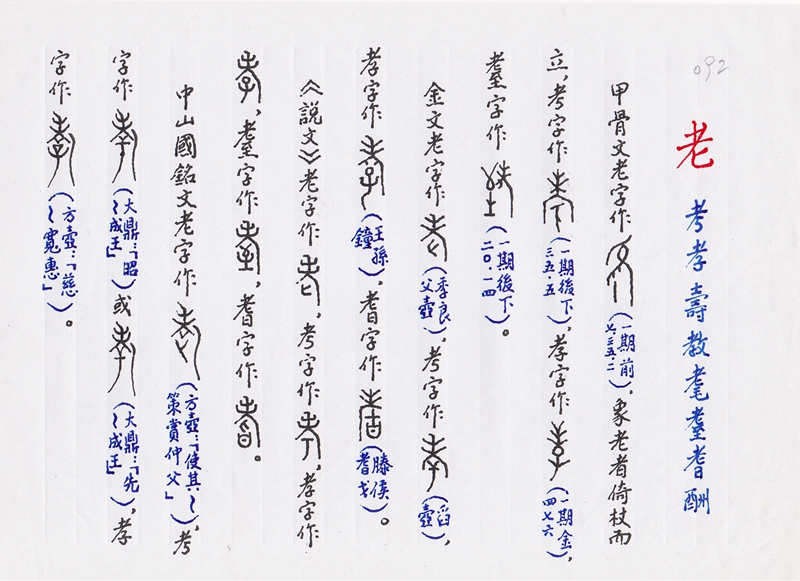 092
老 考孝壽教耄耋耆酬
甲骨文老字作(一期前七.三五.二),象老者倚杖而
立,考字作(一期後下三五.五),孝字作(一期金,四七六
耋字作(一期後下二〇.一四)。
金文老字作(季良父壺),考字作(𦥑壺),
孝字作(王孫鐘),耆字作(滕侯耆戈)。
《說文》老字作,考字作,孝字作
,耋字作,耆字作。
中山國銘文老字作(方壺:「使其~策賞仲父」),考
字作(大鼎:「昭~成王」)或(大鼎:「先~成王」),孝
字作(方壺:「慈~寬惠」)。